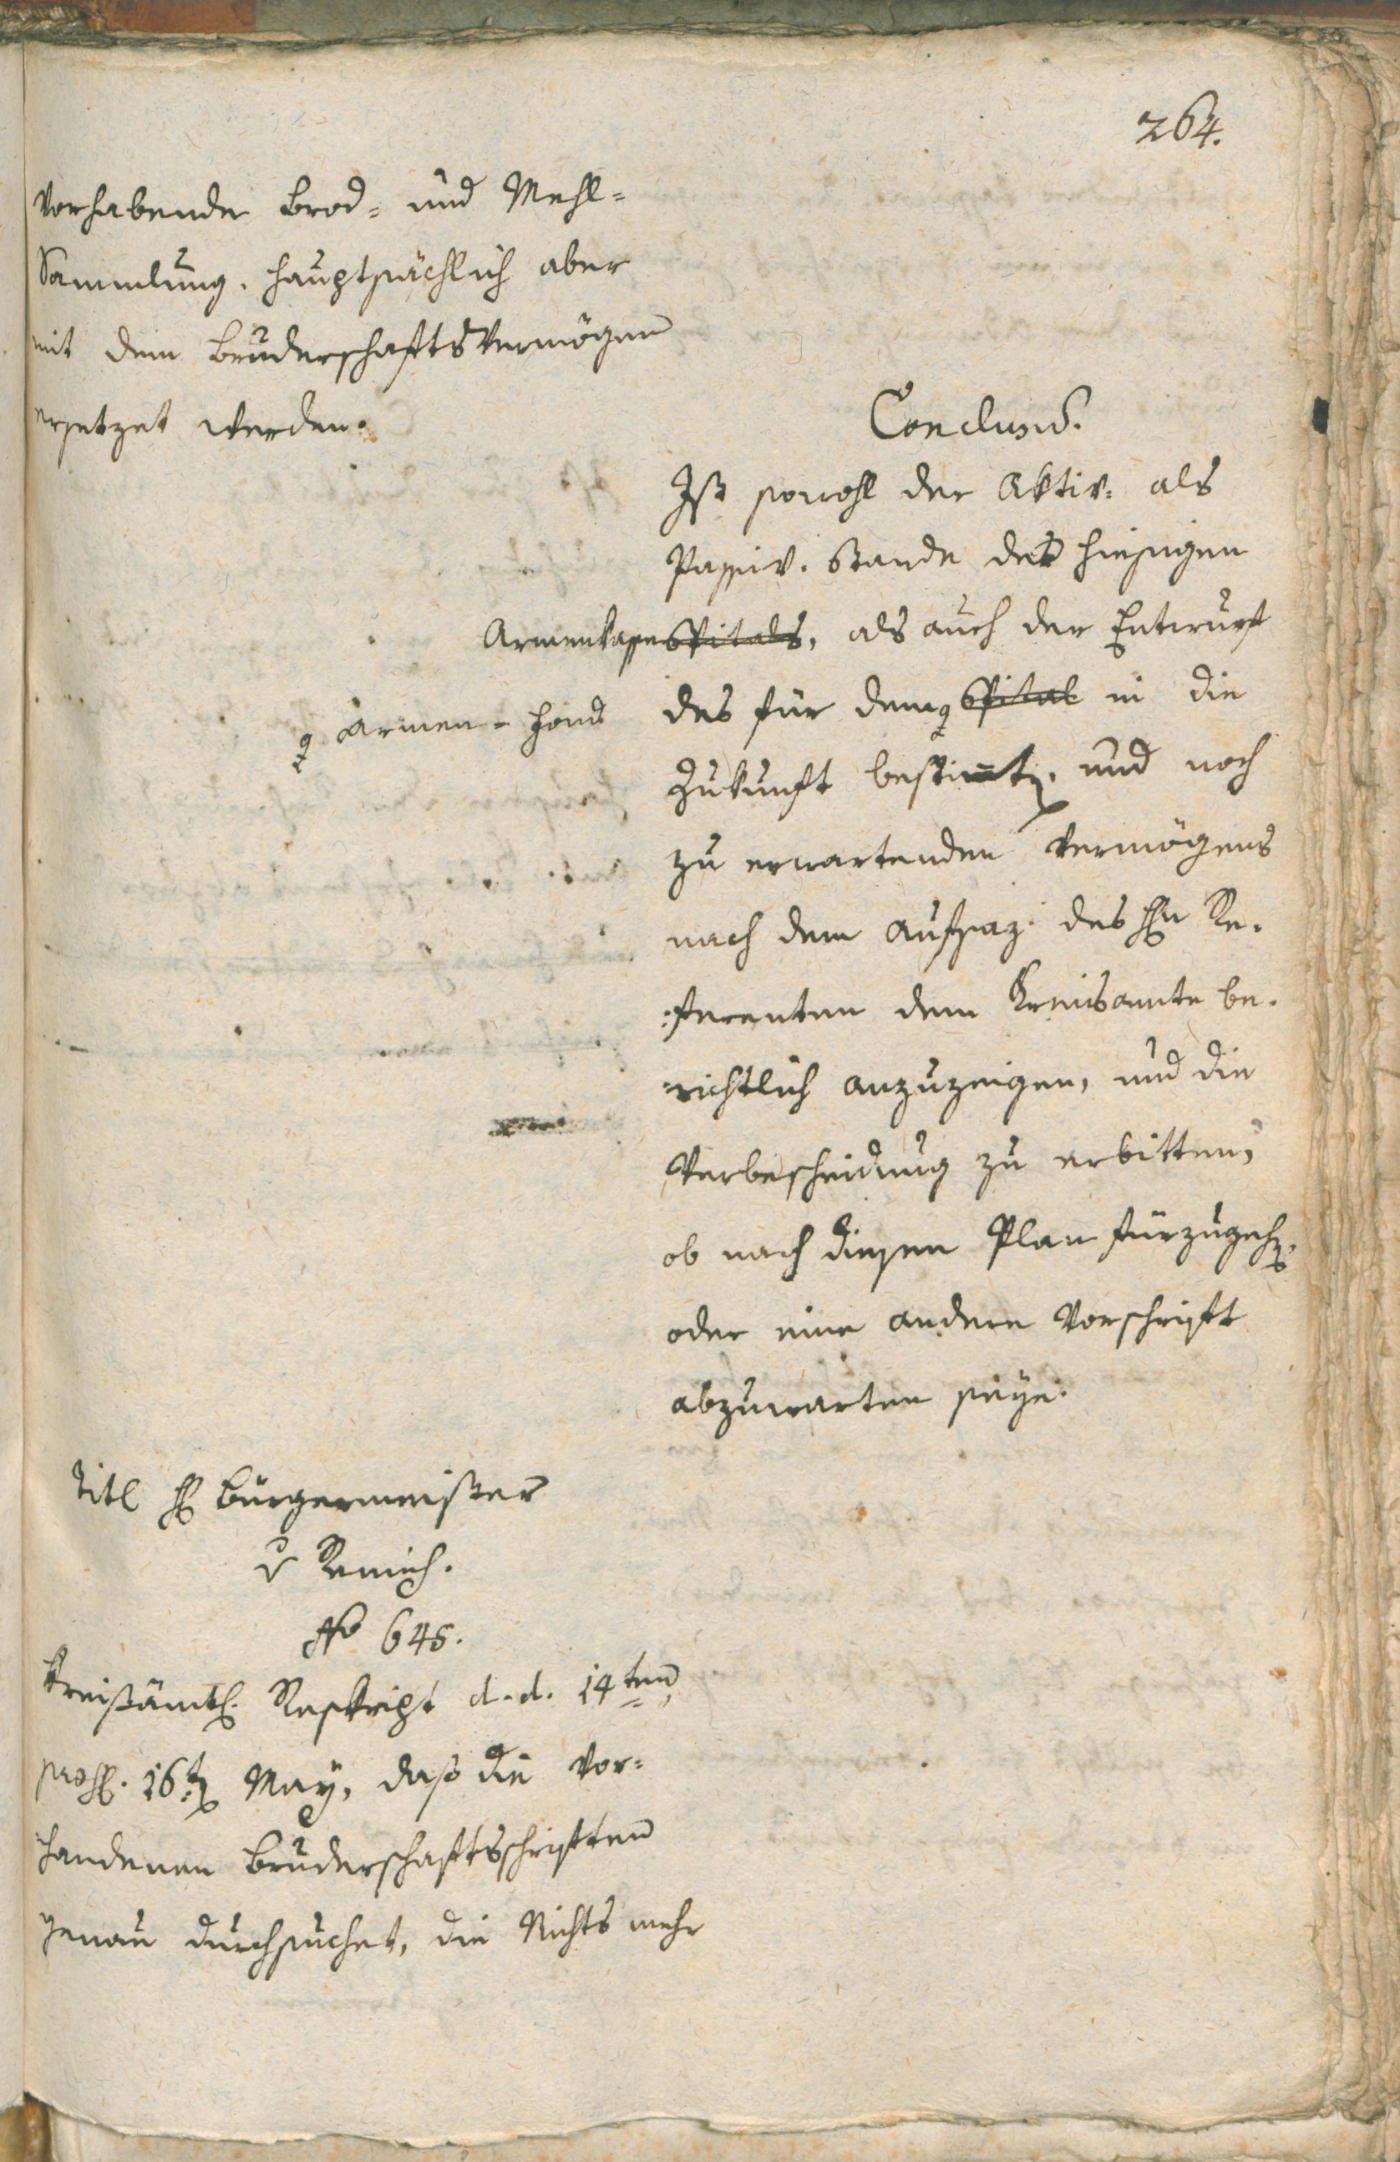 264.
vorhabende Brod- und Mehl-
Sammlung. hauptsächlich aber
mit dem Bruderschaftsvermögen
ersetzet werden.
Conclus.
Ist sowohl der Aktiv- als
Passiv. Stande der hiesigen
Armenkasse Spitals, als auch der Entwurf
des für dem Spital in die
Armen-Fond
Zukunft bestimt. und noch
zu erwartenden Vermögens
nach dem Aufsaz des Hn Re-
ferenten dem Kreisamte be-
richtlich anzuzeigen, und die
Verbescheidung zu erbitten,
ob nach diesen Plan fürzugeh.
oder eine andere Vorschrift
abzuwarten seye.
Titl H Bürgermeister
v Remich.
No 645.
Kreisämtl. Reskript d. d. 14ten
16t May, daß die vor-
handenen Bruderschaftsschriften
genau durchsuchet, die Nichts mehr